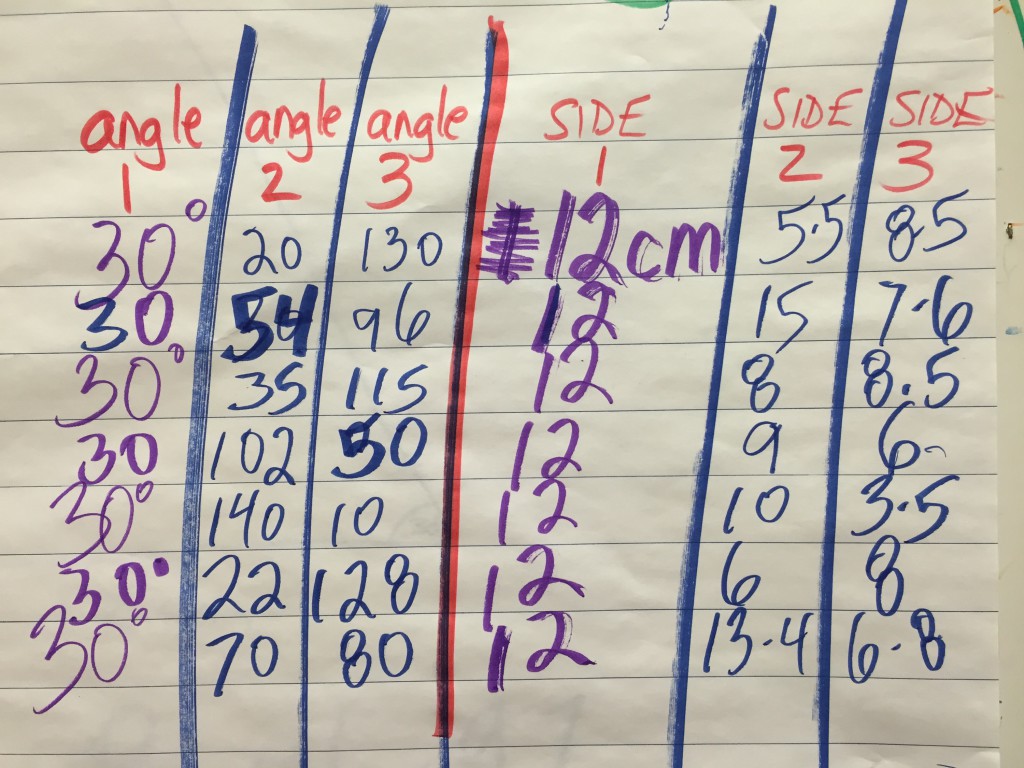 angle angle angle SIDE SIDE SIDE
1 2 3 1 2 3
30° 20 130 12cm 5.5 8.5
30 54 96 12 15 7.6
30° 35 115 12 8 8.5
30 102 50 12 9 6
30° 140 10 12 10 3.5
30° 22 128 12 6 8
30° 70 80 12 13.4 6.8